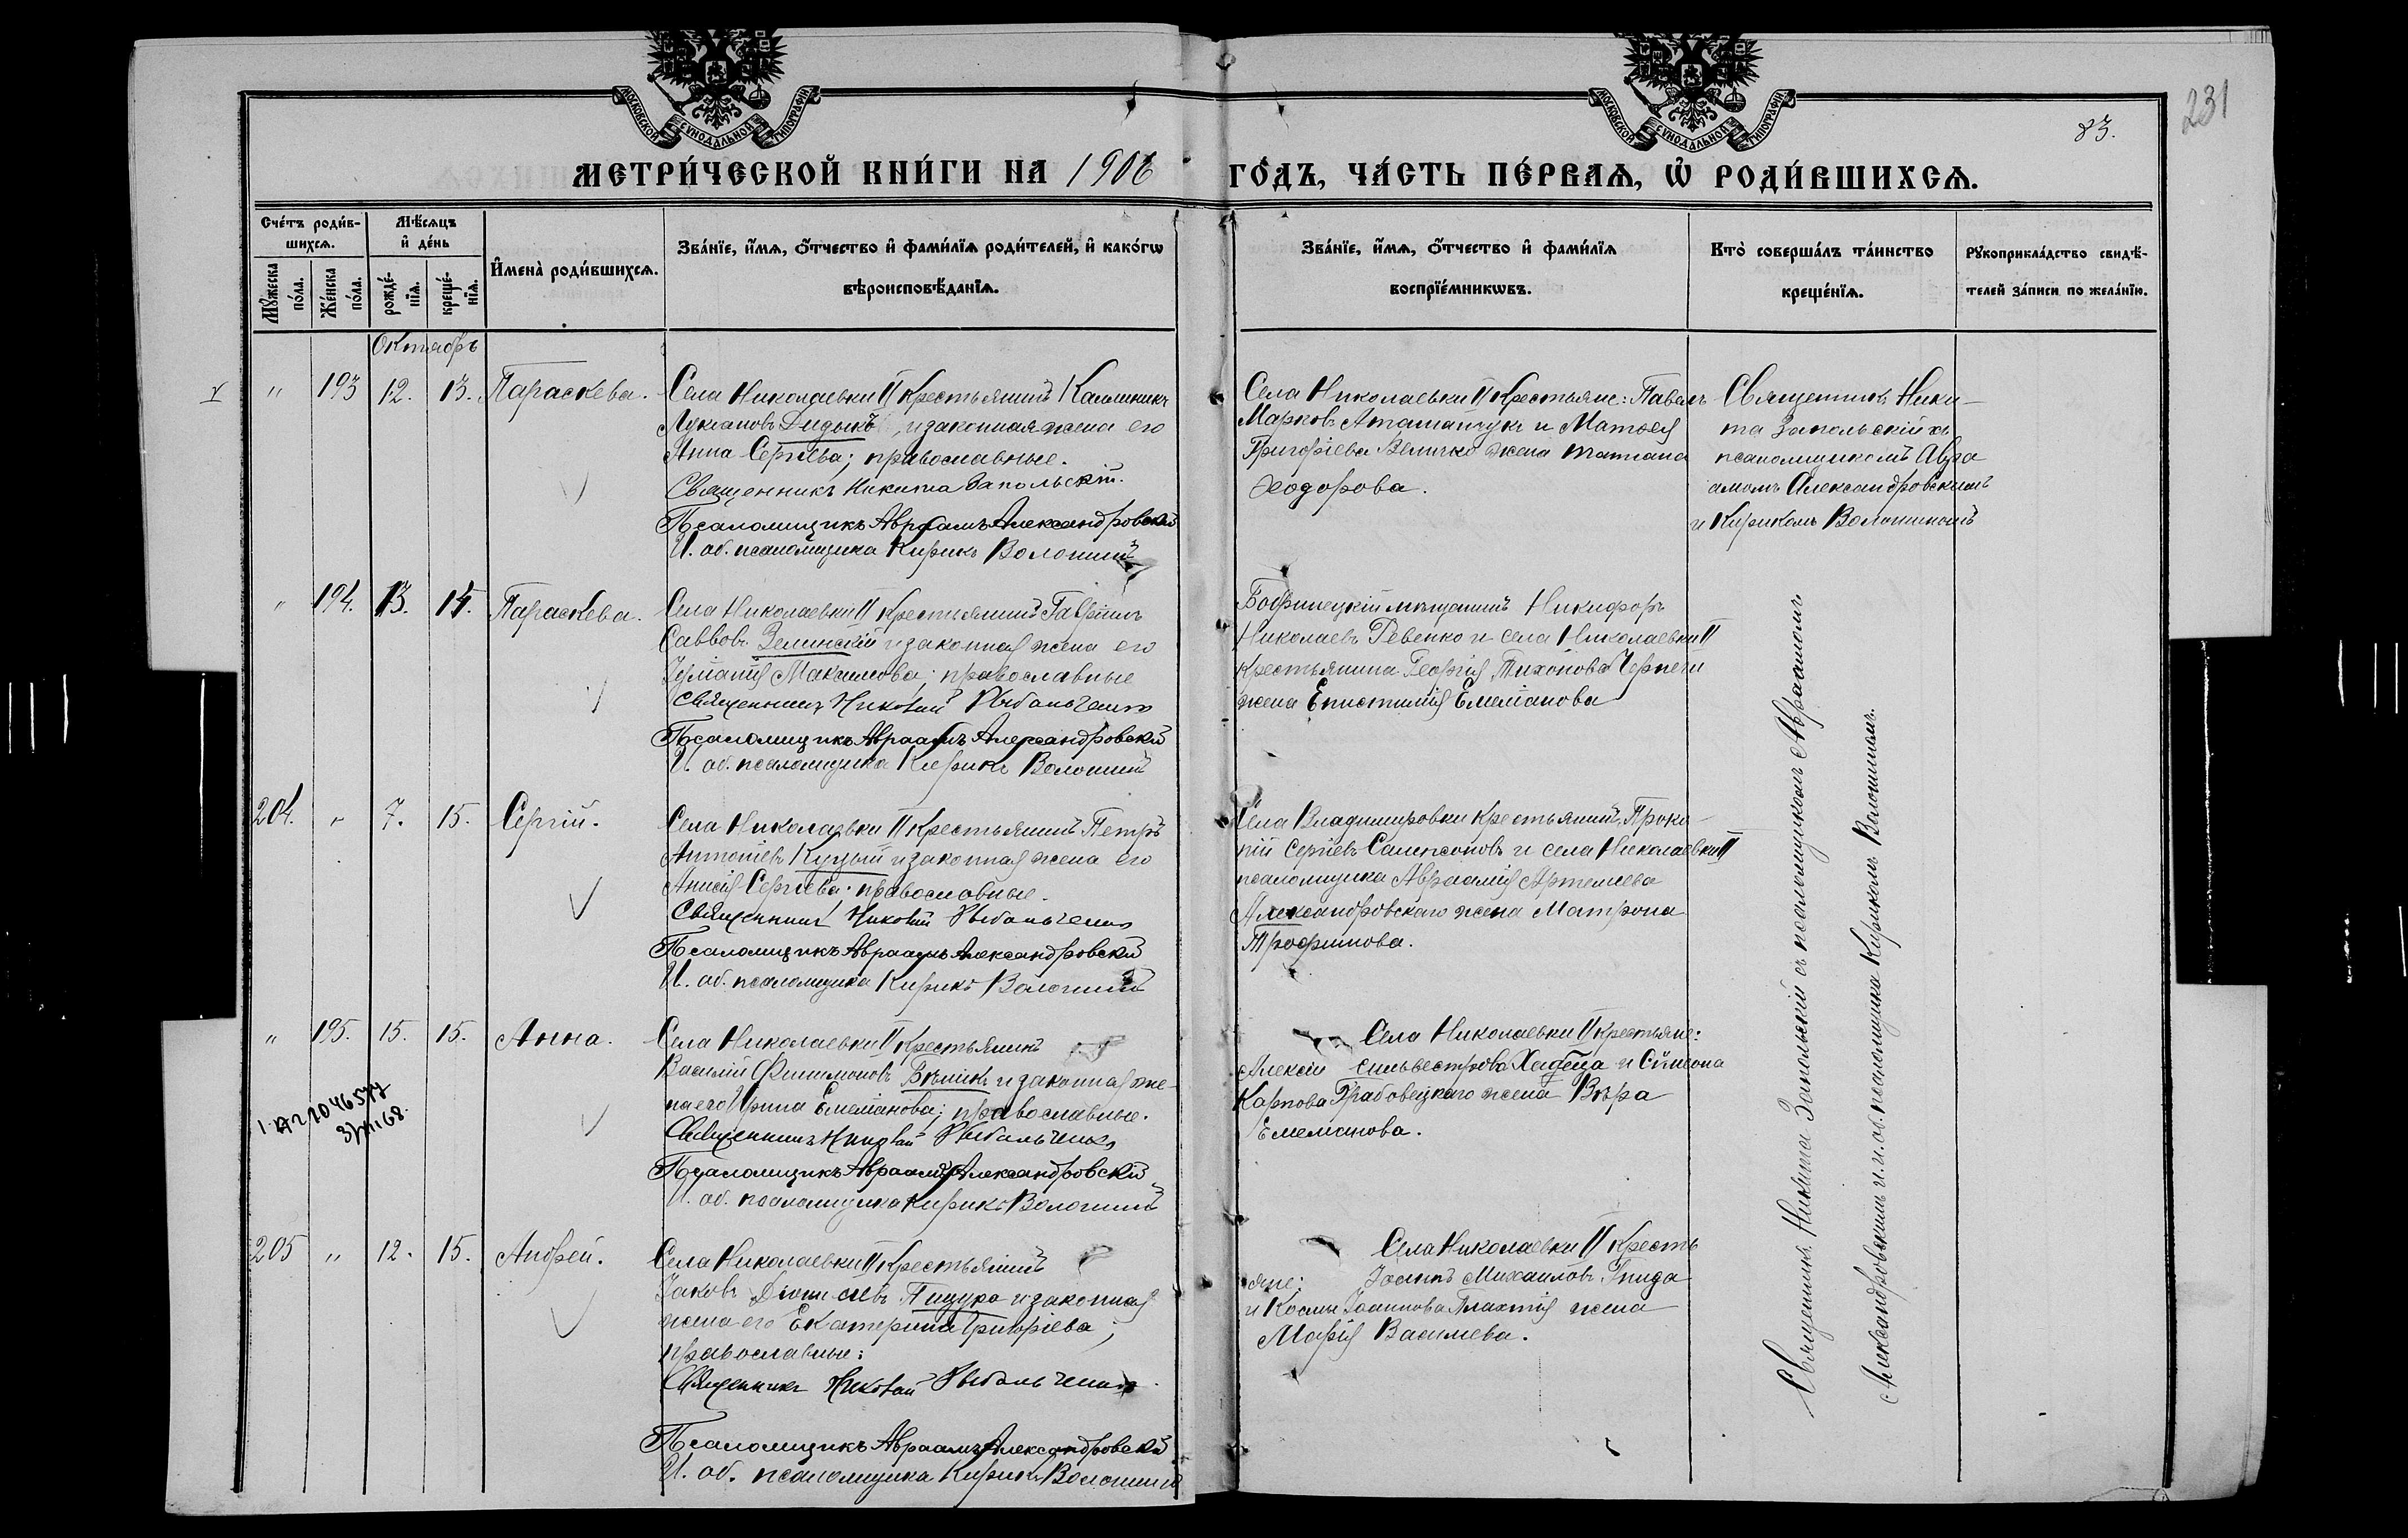 МОСКОВСКОЙ СѴНОДАЛЬНОЙ ТИПОГРАФІИ
МОСКОВСКОЙ СѴНОДАЛЬНОЙ ТИПОГРАФІИ
231
83.
МЕТРИ́ЧЕСКОЙ КНИ́ГИ НА 1906
ГО́ДЪ, ЧА́СТЬ ПЕ́РВАѦ, Ѡ҆ РОДИ́ВШИХСѦ.
Сче́тъ роди́в-
шихсѧ.
Мꙋ́жеска по́ла.
Же́нска по́ла.
Мѣ́сѧцъ
и҆ де́нь
рожде́-
нїѧ.
креще́-
нїѧ.
И҆мена̀ роди́вшихсѧ.
Зва́нїе, и҆́мѧ, ѻ҆́тчество и҆ фами́лїѧ роди́телей, и҆ како́гѡ
вѣроисповѣ́данїѧ.
Зва́нїе, и҆́мѧ, ѻ҆́тчество и҆ фами́лїѧ
воспрїе́мникѡвъ.
Кто̀ соверша́лъ та́инство
креще́нїѧ.
Рꙋкоприкла́дство свидѣ́-
телей за́писи по жела́нїю.
Октябрь
" 193 12. 13. Параскева.
Села Николаевки II крестьянинъ Калинникъ
Лукіановъ Дидыкъ, и законная жена его
Анна Сергіева; православные.
Священникъ Никита Запольскій.
Псаломщикъ Авраамъ Александровскій
И. об. псаломщика Кирикъ Волошинъ
Села Николаевки II крестьяне: Павелъ
Марковъ Атаманчукъ и Матѳея
Григоріева Величко жена Татіана
Ѳеодорова.
Священникъ Ники-
та Запольскій съ
псаломщикомъ Авра
амомъ Александровскимъ
и Кирикомъ Волошинымъ
" 194. 13. 14. Параскева.
Села Николаевки II крестьянинъ Гавріилъ
Саввовъ Зелинскій и законная жена его
Іуліанія Максимова; православные
Священникъ Николай Рыбальченко
Псаломщикъ Авраамъ Александровскій
И. об. псаломщика Кирикъ Волошинъ
Бобринецкій мѣщанинъ Никифоръ
Николаевъ Ревенко и села Николаевки II
крестьянина Георгія Тихонова
жена Епистимія Емеліанова
204. " 7. 15. Сергій.
Села Николаевки II крестьянинъ Петръ
Антоніевъ Куцый и законная жена его
Анисія Сергіева; православные.
Священникъ Николай Рыбальченко
Псаломщикъ Авраамъ Александровскій
И. об. псаломщика Кирикъ Волошинъ
Села Владимировки крестьянинъ Проко-
пій Сергіевъ Самсоновъ и села Николаевки II
псаломщика Авраамія Артемиева
Александровскаго жена Матрона
Трофимова.
" 195. 15. 15. Анна.
Села Николаевки II крестьянинъ
Василій Филимоновъ Бѣликъ и законная же-
на его Ирина Емеліанова; православные.
Священникъ Николай Рыбальченко
Псаломщикъ Авраамъ Александровскій
И. об. псаломщика Кирикъ Волошинъ
Села Николаевки II крестьяне:
Алексій Сильвестрова и Симеона
Карпова Грабовецкаго жена Вѣра
Емеліанова.
205 " 12. 15. Андрей.
Села Николаевки II крестьянинъ
Іаковъ Діонисіевъ Пицура и законная
жена его Екатерина Григоріева;
православные:
Священникъ Николай Рыбальченко
Псаломщикъ Авраамъ Александровскій
И. об. псаломщика Кирикъ Волошинъ
Села Николаевки II кресть
яне: Іоаннъ Михаиловъ Гнида
и Космы Іоаннова Плахтія жена
Марія Василиева.
Священникъ Никита Запольскій съ псаломщикомъ Авраамомъ
Александровскимъ и и. об. псаломщика Кирикомъ Волошинымъ.